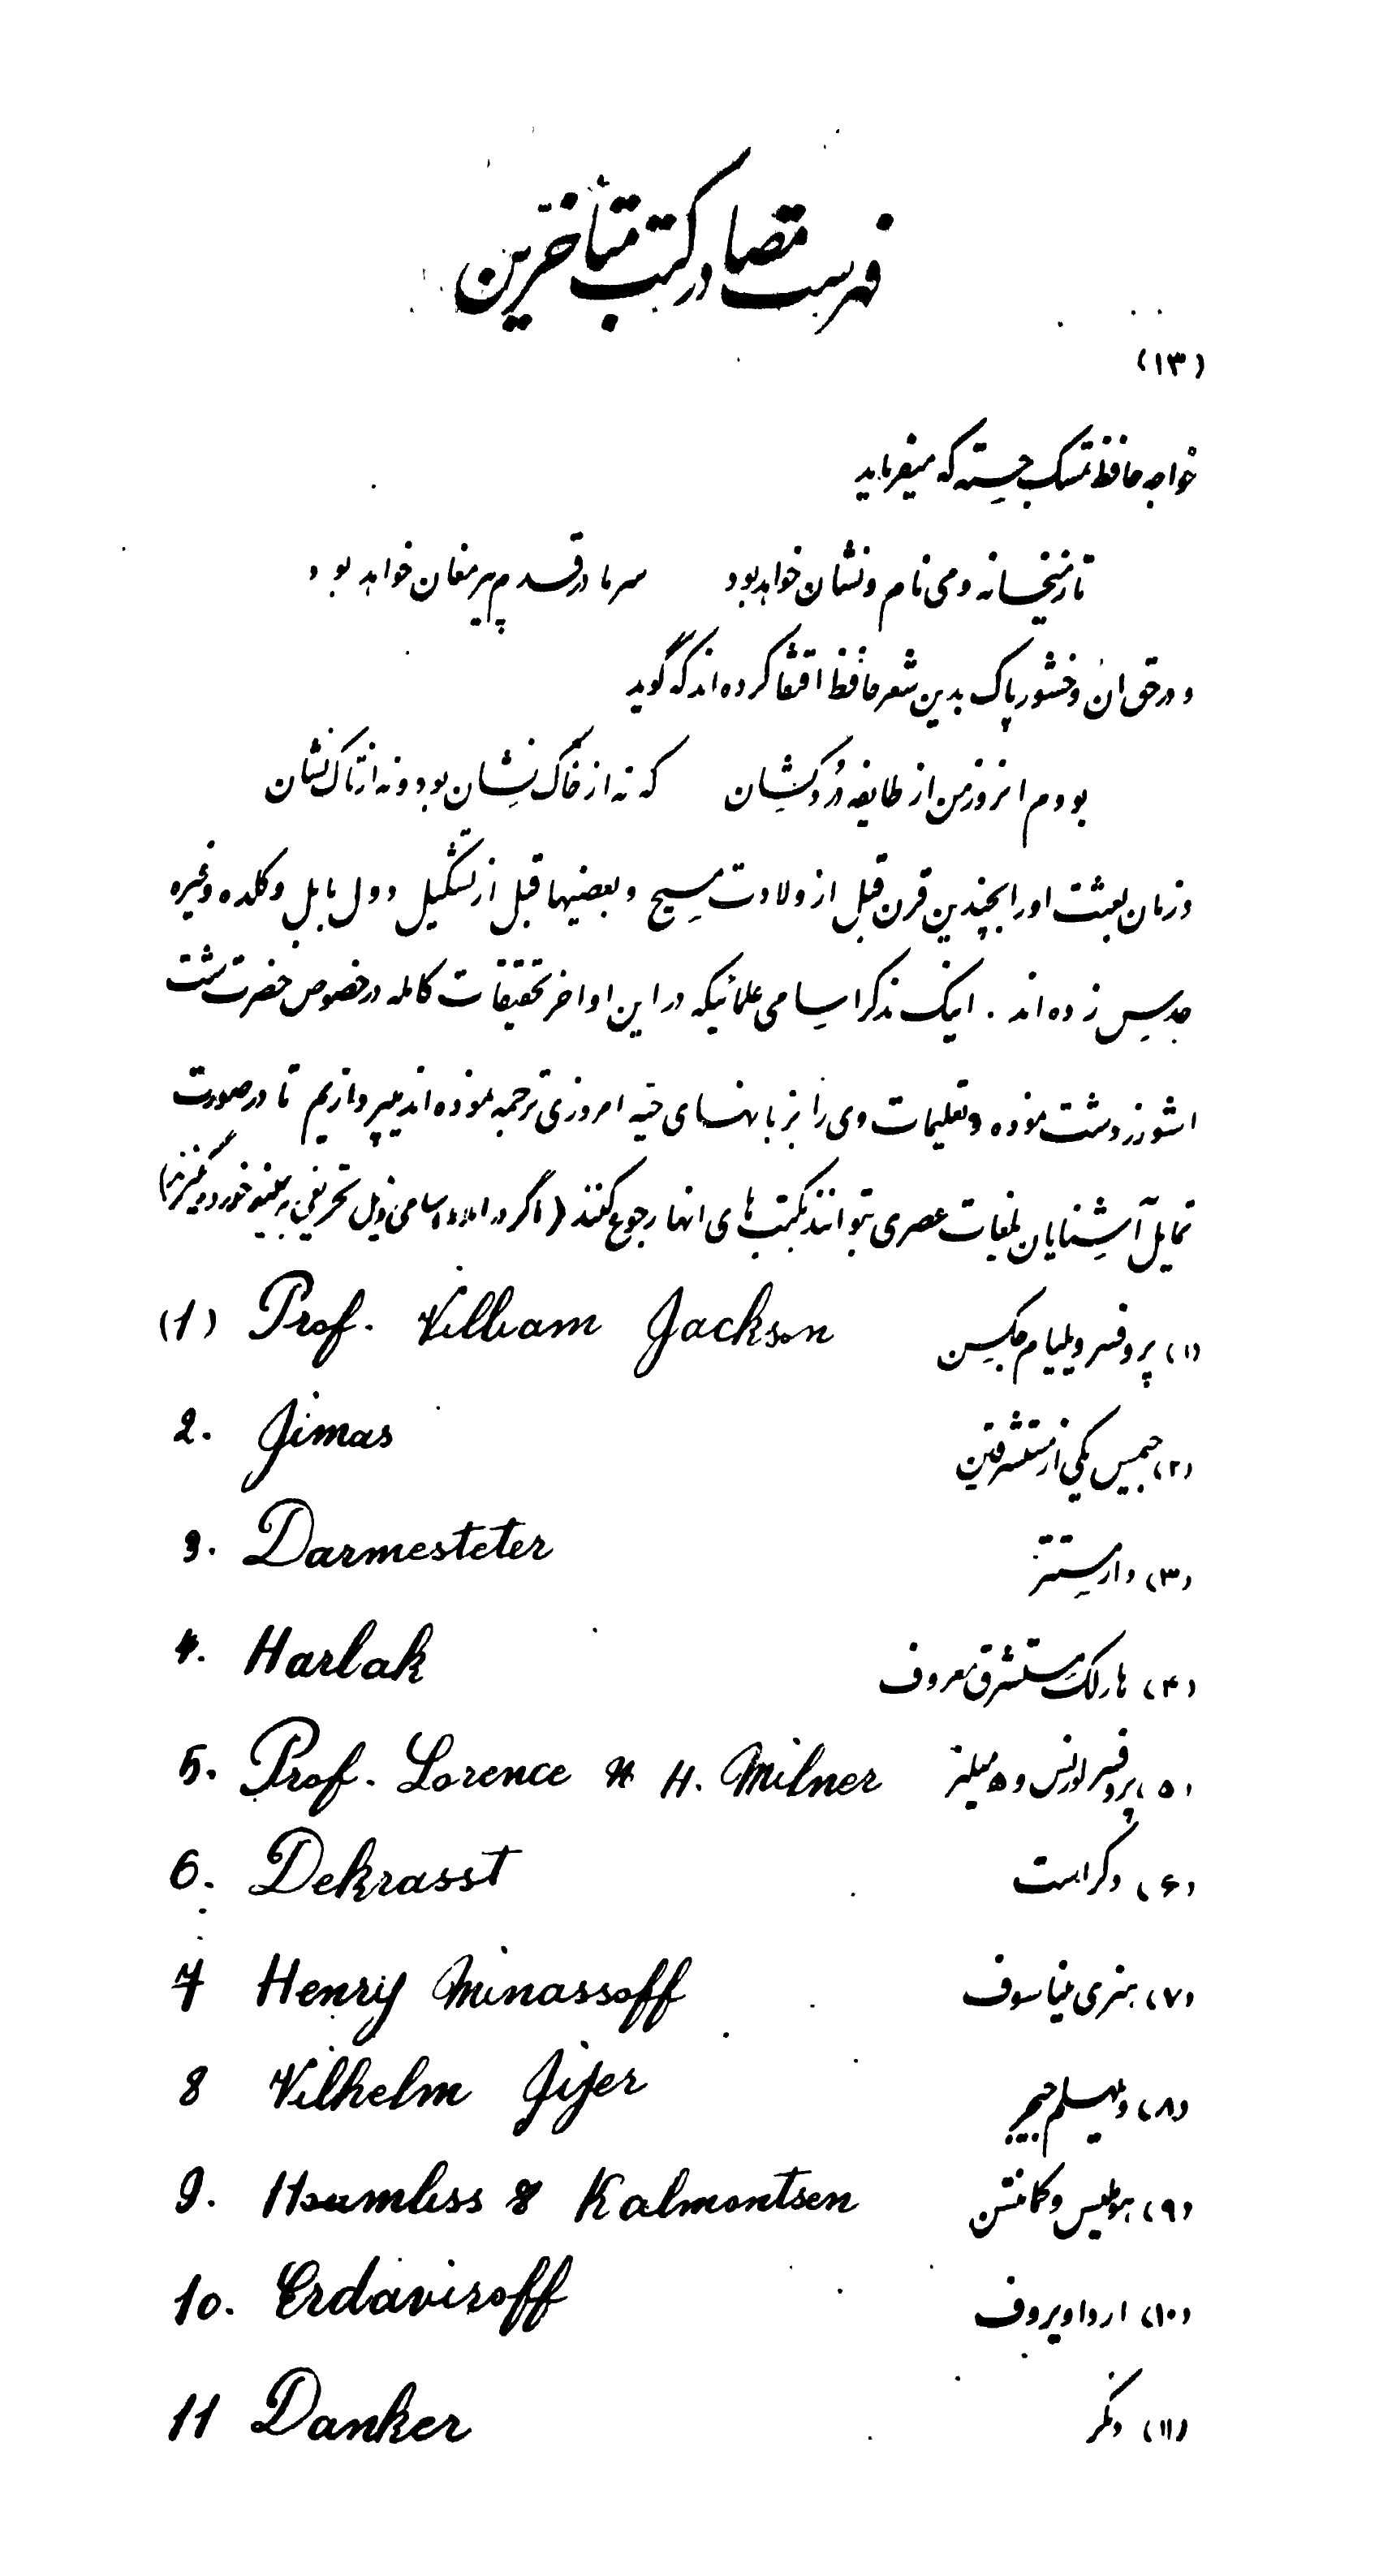 فهرست مصادر کتب متأخّرین
(۱۳)
خواجه حافظ تمسک جسته که میفرماید
تا ز میخانه و می نام و نشان خواهد بود    سر ما در قدم پیر مغان خواهد بود
و در حق ان وخشور پاک بدین شعر حافظ اقتفا کرده‌اند که گوید
بودم انروز من از طایفه دُردکشان    که نه از خاک نشان بود و نه از تاک نشان
و زمان بعثت او را بچندین قرن قبل از ولادت مسیح و بعضیها قبل از تشکیل دول بابل و کلده و غیره
حدس زده‌اند . اینک بذکر اسامی علمائیکه در این اواخر تحقیقات کامله در خصوص حضرت شت
اشو زردشت نموده و تعلیمات وی را بزبانهای حیّه امروزی ترجمه نموده‌اند میپردازیم تا در صورت
تمایل آشنایان بلغات عصری بتوانند بکتب‌های انها رجوع کنند (اگر در املاء اسامی ذیل تحریفی
(1) Prof. Villiam Jackson    (۱) پروفسر ویلیام جکسن
2. Jimas    (۲) جیمس یکی از مستشرقین
3. Darmesteter    (۳) دارمستتر
4. Harlak    (۴) هارلک مستشرق معروف
5. Prof. Lorence & H. Milner    (۵) پروفسر لورنس و ه میلنر
6. Dekrasst    (۶) دکراست
7 Henry Minassoff    (۷) هنری میناسوف
8 Vilhelm Jijer    (۸) ویلهلم جیجر
9. Houmliss & Kalmontsen    (۹) هوملیس و کلمنتسن
10. Erdaviroff    (۱۰) ارداویروف
11 Danker    (۱۱) دنکر